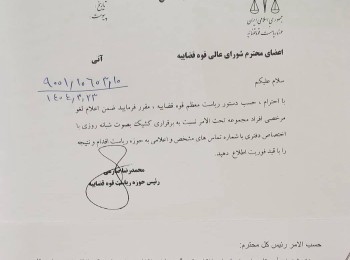 تاریخ
پیوست
جمهوری اسلامی ایران
اعضای محترم شورای عالی قوه قضاییه
آنی
۹۰۰۱/۱۰۶۰۲/۱۰
۱۴۰۴,۳,۲۳
سلام علیکم
با احترام ، حسب دستور ریاست معظم قوه قضاییه ، مقرر فرمایید ضمن اعلام لغو
مرخصی افراد مجموعه تحت الامر نسبت به برقراری کشیک بصورت شبانه روزی با
اختصاص دفتری با شماره تماس های مشخص و اعلامی به حوزه ریاست اقدام و نتیجه
را با قید فوریت اطلاع دهید.
رئیس حوزه ریاست قوه قضاییه
حسب الامر رئیس کل محترم: